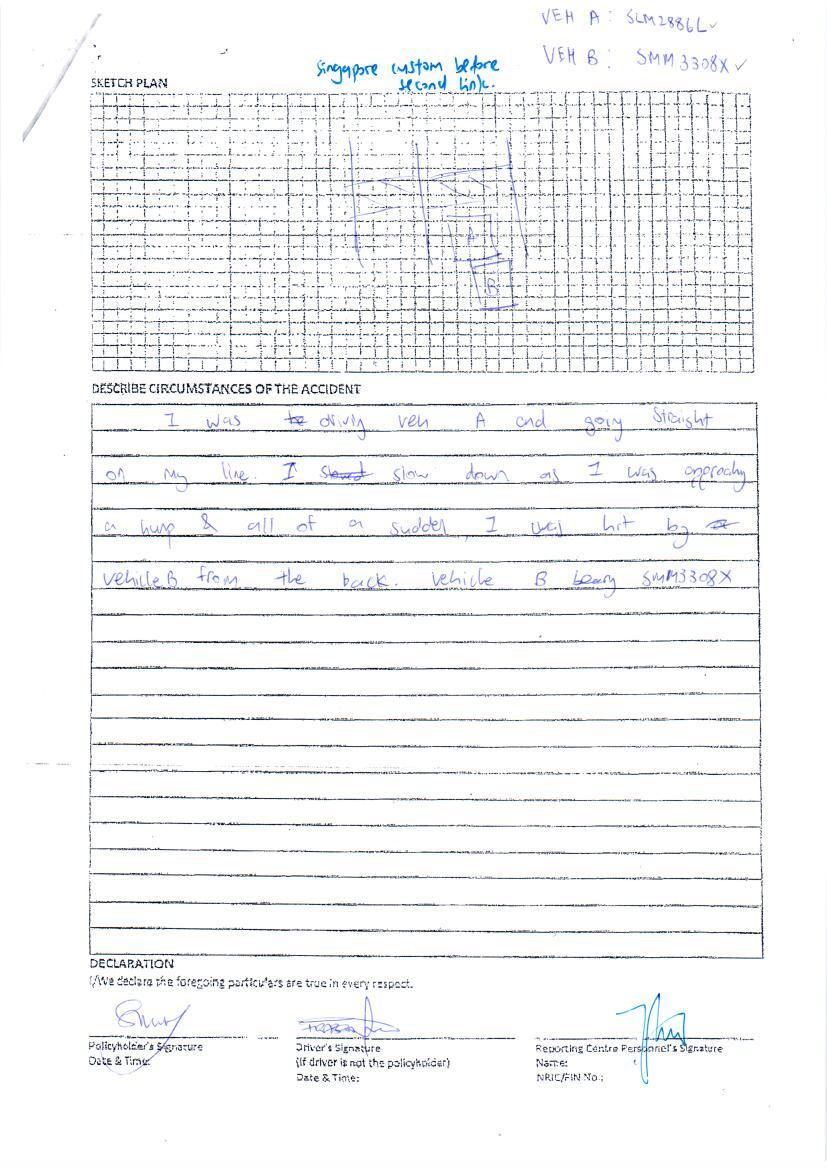 VEH A: SLM2886L ✓
VEH B: SMM3308X ✓
Singapore custom before
second link.
SKETCH PLAN
A
B
DESCRIBE CIRCUMSTANCES OF THE ACCIDENT
I was drivig veh A and going straight
on my line. I slow down as I was approachy
a hump & all of a sudden, I was hit by
vehicle B from the back. Vehicle B SMM3308X
DECLARATION
I/We declare the foregoing particulars are true in every respect.
Policyholder's Signature
Date & Time:
Driver's Signature
(If driver is not the policyholder)
Date & Time:
Reporting Centre Personnel's Signature
Name:
NRIC/FIN No.: